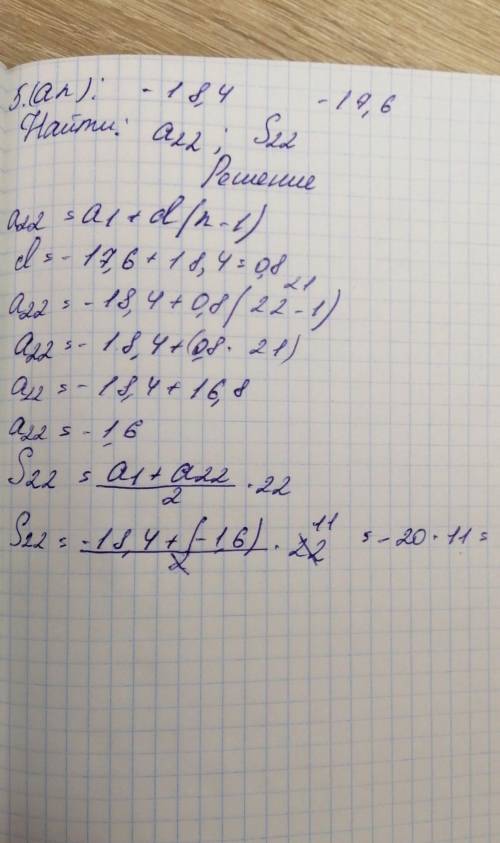 5.(an): -18,4 -17,6
Найти: a22; S22
Решение
a22 = a1 + d(n-1)
d = -17,6 + 18,4 = 0,8
21
a22 = -18,4 + 0,8(22-1)
a22 = -18,4 + (0,8 · 21)
a22 = -18,4 + 16,8
a22 = -1,6
S22 = a1 + a22 / 2 · 22
S22 = -18,4 + (-1,6) / 2 · 22 11 = -20 · 11 =